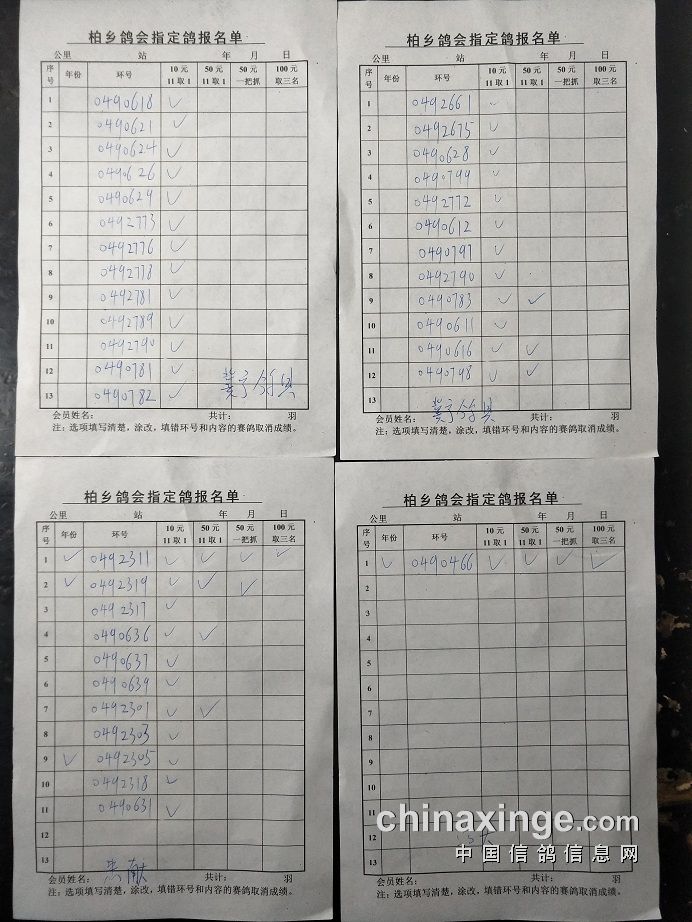 柏乡鸽会指定鸽报名单
公里 站 年 月 日
序号 年份 环号 10元 11取1 50元 11取1 50元 一把抓 100元 取三名
1 0490618 ✓
2 0490621 ✓
3 0490624 ✓
4 0490626 ✓
5 0490629 ✓
6 0492773 ✓
7 0492776 ✓
8 0492778 ✓
9 0492781 ✓
10 0492789 ✓
11 0492790 ✓
12 0490781 ✓
13 0490782 ✓
会员姓名: 共计: 羽
注:选项填写清楚,涂改,填错环号和内容的赛鸽取消成绩。
柏乡鸽会指定鸽报名单
公里 站 年 月 日
序号 年份 环号 10元 11取1 50元 11取1 50元 一把抓 100元 取三名
1 0492661 ✓
2 0492675 ✓
3 0490628 ✓
4 0490799 ✓
5 0492772 ✓
6 0490612 ✓
7 0490797 ✓
8 0492790 ✓
9 0490783 ✓ ✓
10 0490611 ✓
11 0490616 ✓ ✓
12 0490798 ✓ ✓
13
会员姓名: 共计: 羽
注:选项填写清楚,涂改,填错环号和内容的赛鸽取消成绩。
柏乡鸽会指定鸽报名单
公里 站 年 月 日
序号 年份 环号 10元 11取1 50元 11取1 50元 一把抓 100元 取三名
1 ✓ 0492311 ✓ ✓ ✓ ✓
2 ✓ 0492319 ✓ ✓ ✓
3 0492317 ✓
4 0490636 ✓ ✓
5 0490637 ✓
6 0490639 ✓
7 0492301 ✓ ✓
8 0492303 ✓
9 ✓ 0492305 ✓
10 0492318 ✓
11 0490631 ✓
12
13
会员姓名: 共计: 羽
注:选项填写清楚,涂改,填错环号和内容的赛鸽取消成绩。
柏乡鸽会指定鸽报名单
公里 站 年 月 日
序号 年份 环号 10元 11取1 50元 11取1 50元 一把抓 100元 取三名
1 ✓ 0490466 ✓ ✓ ✓ ✓
2
3
4
5
6
7
8
9
10
11
12
13
会员姓名: 共计: 羽
注:选项填写清楚,涂改,填错环号和内容的赛鸽取消成绩。
chinaxinge.com
中国信鸽信息网